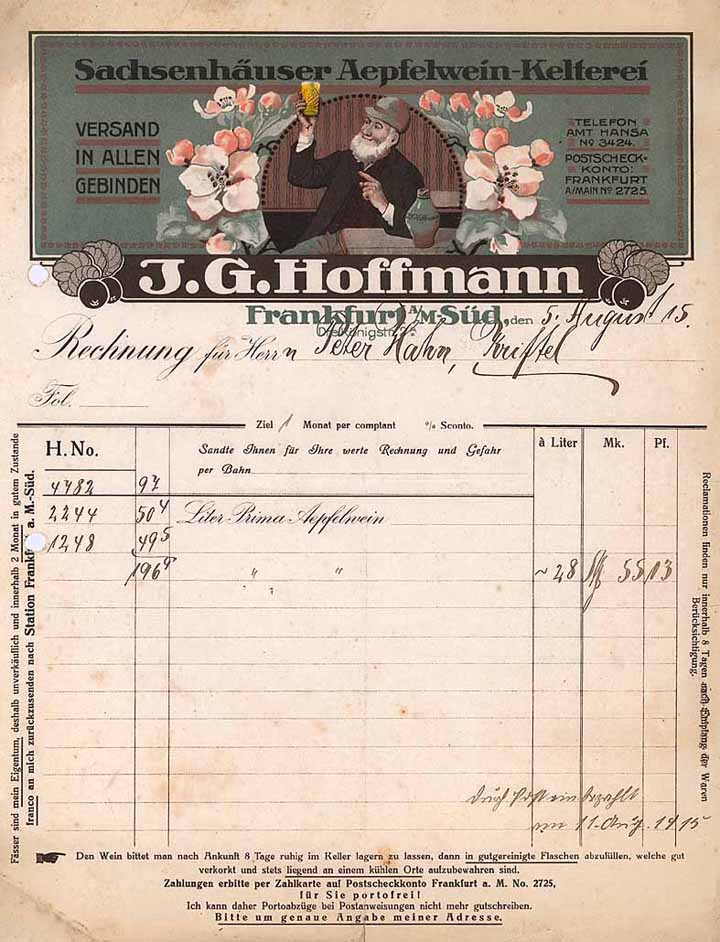 Sachsenhäuser Aepfelwein-Kelterei
VERSAND
IN ALLEN
GEBINDEN
TELEFON
AMT HANSA
No 3424.
POSTSCHECK-
KONTO:
FRANKFURT
A/MAIN No 2725.
J.G. Hoffmann
Frankfurt A/M-Süd, den 5. August 15.
Dreikönigstr.
Rechnung für Herrn Peter Hahn, Kriftel
Fol.
Ziel 1 Monat per comptant % Sconto.
H. No. Sandte Ihnen für Ihre werte Rechnung und Gefahr à Liter Mk. Pf.
per Bahn
4782 97
2244 504 Liter Prima Aepfelwein
1248 495
1969 " " ~ 28 M 55 13
durch Post einbezahlt
am 11. Aug. 1915
Fässer sind mein Eigentum, deshalb unverkäuflich und innerhalb 2 Monat in gutem Zustande
franco an mich zurückzusenden nach Station Frankfurt a. M.-Süd.
Reclamationen finden nur innerhalb 8 Tagen nach Empfang der Waren
Berücksichtigung.
Den Wein bittet man nach Ankunft 8 Tage ruhig im Keller lagern zu lassen, dann in gutgereinigte Flaschen abzufüllen, welche gut
verkorkt und stets liegend an einem kühlen Orte aufzubewahren sind.
Zahlungen erbitte per Zahlkarte auf Postscheckkonto Frankfurt a. M. No. 2725,
für Sie portofrei!
Ich kann daher Portoabzüge bei Postanweisungen nicht mehr gutschreiben.
Bitte um genaue Angabe meiner Adresse.